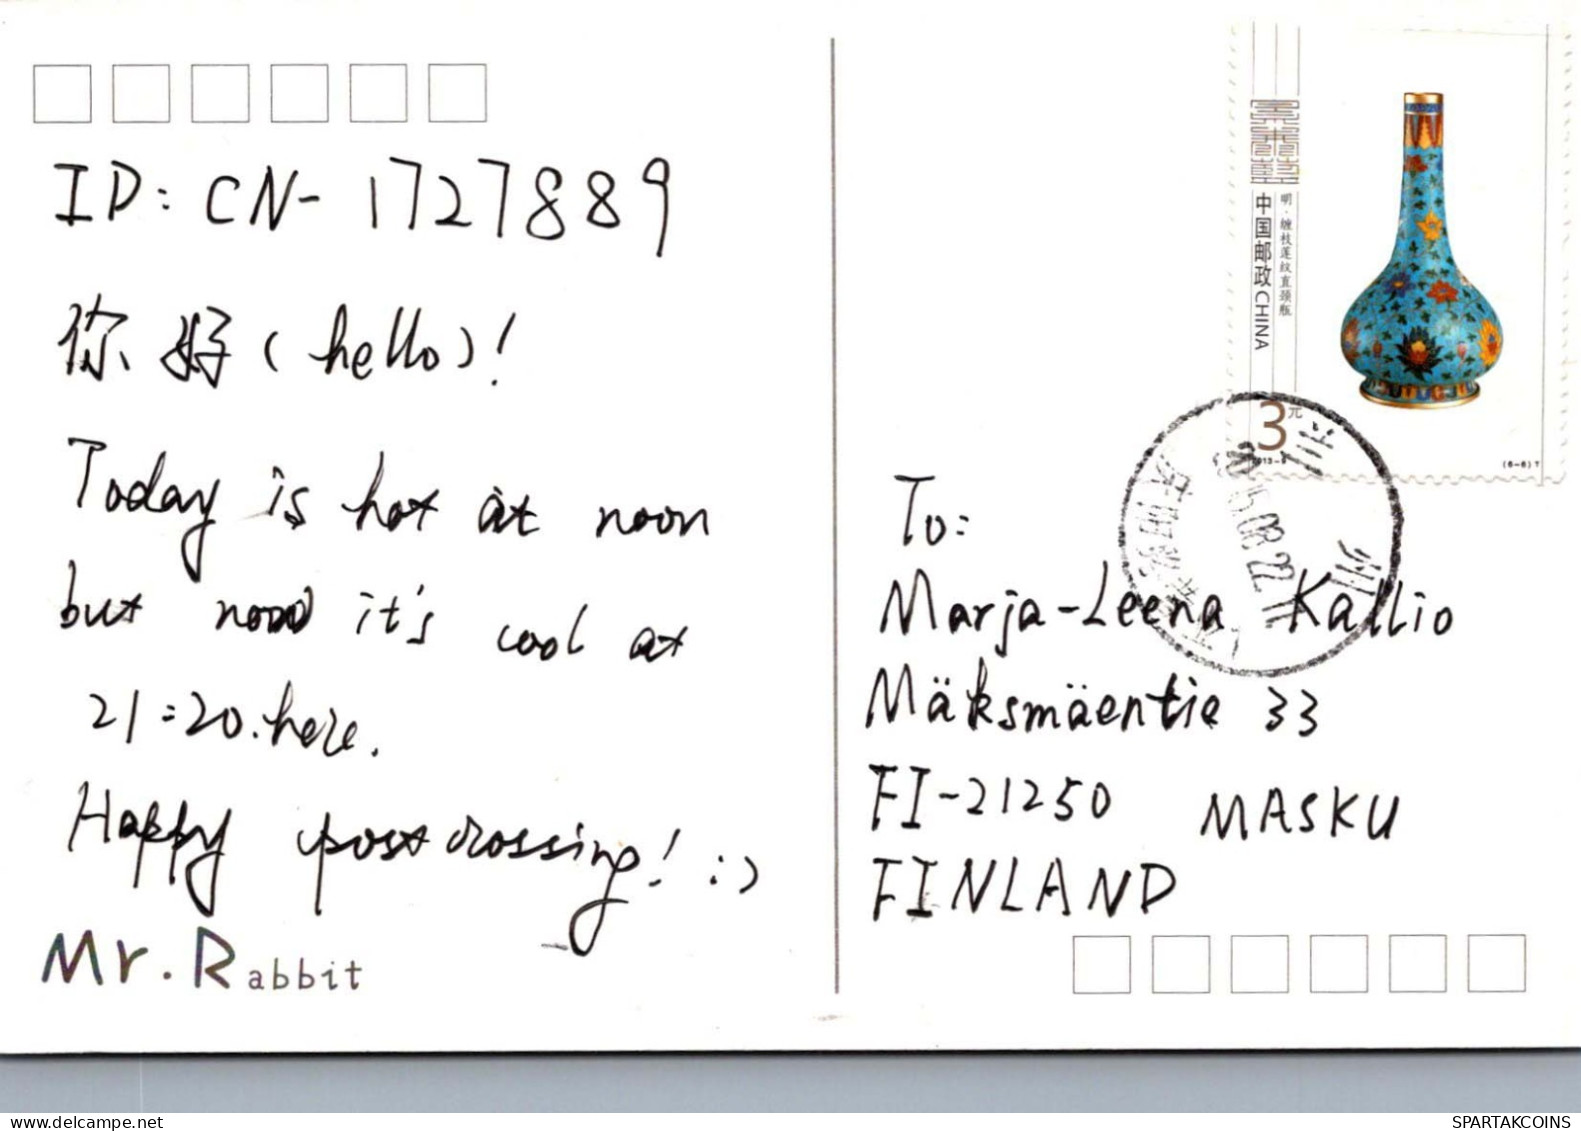 ID: CN-1727889
你好(hello)!
Today is hot at noon
but it's cool at
21:20.here.
Happy postcrossing! :)
Mr. Rabbit
中国邮政 CHINA
明·缠枝莲纹直颈瓶
3元
2013-9
(6-6)T
08.22
To:
Marja-Leena Kallio
Mäksmäentie 33
FI-21250 MASKU
FINLAND
SPARTAKCOINS